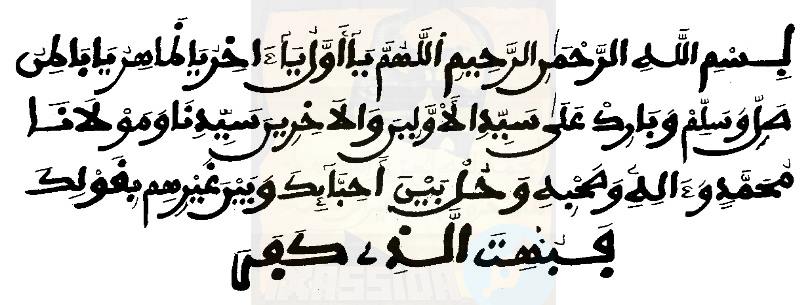 بِسْمِ اللَّهِ الرَّحْمَنِ الرَّحِيمِ اللَّهُمَّ يَا أَوَّلُ يَا ءَاخِرُ يَا ظَاهِرُ يَا بَاطِنُ
صَلِّ وَسَلِّمْ وَبَارِكْ عَلَى سَيِّدِ الْأَوَّلِينَ وَالْآخِرِينَ سَيِّدِنَا وَمَوْلَانَا
مُحَمَّدٍ وَءَالِهِ وَصَحْبِهِ وَحُلْ بَيْنَ أَحِبَّائِكَ وَبَيْنَ غَيْرِهِم بِقَوْلِكَ
فَبُهِتَ الَّذِي كَفَرَ
KASSIDA